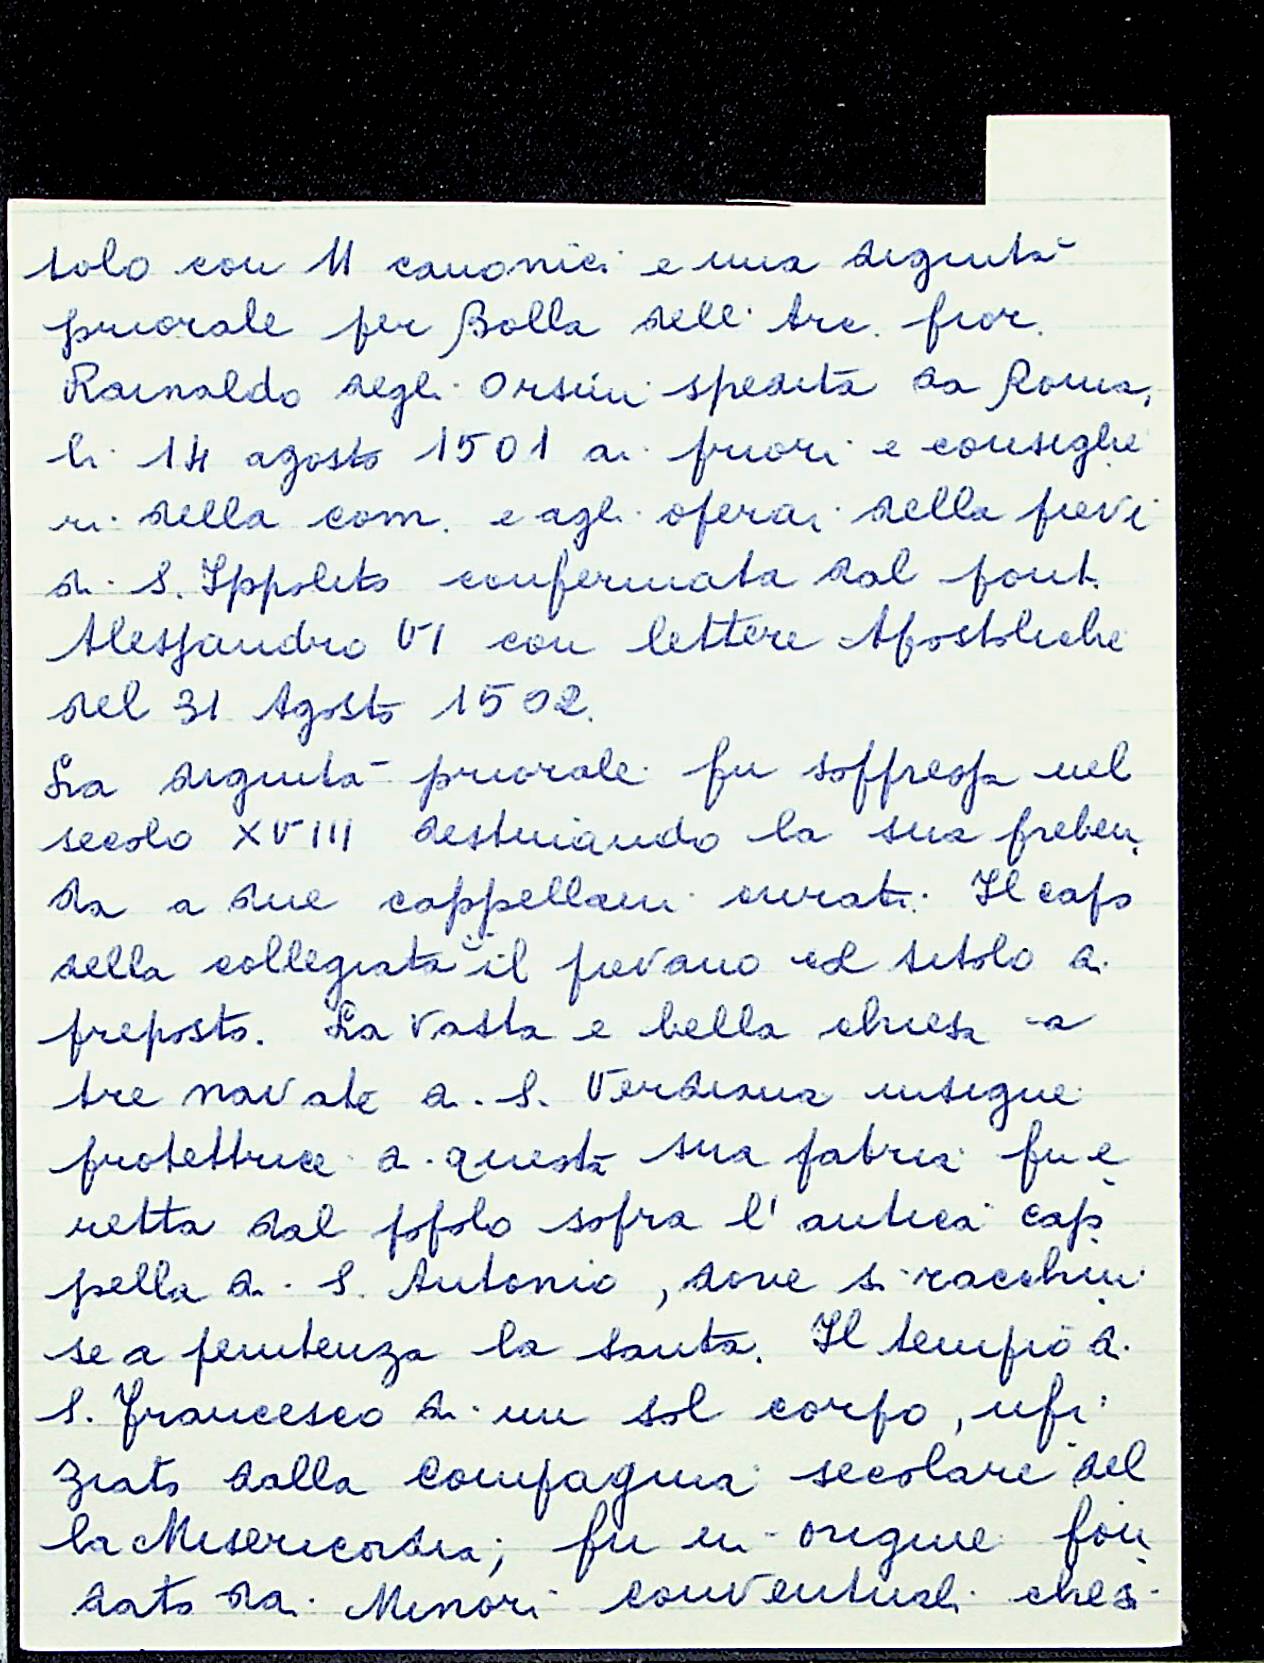 tolo con 11 canonici e una dignità
priorale per Bolla dell'Arc. fior.
Rainaldo degli Orsini spedita da Roma,
li 14 agosto 1501 ai priori e consiglie
ri della com. e agli operai della pievi
di S. Ippolito confermata dal pont.
Alessandro VI con lettere Apostoliche
del 31 Agosto 1502.
La dignità priorale fu soppressa nel
secolo XVIII destinando la sua preben
da a due cappellani curati. Il capo
della collegiata è il pievano col titolo di
preposto. La vasta e bella chiesa a
tre navate di S. Verdiana insigne
protettrice di questa sua patria fu e
retta dal popolo sopra l'antica cap
pella di S. Antonio, dove si racchiu
se a penitenza la santa. Il tempio di
S. Francesco di un sol corpo, ufi
ziato dalla Compagnia secolare del
la Misericordia; fu in origine fon
dato dai Minori conventuali che si